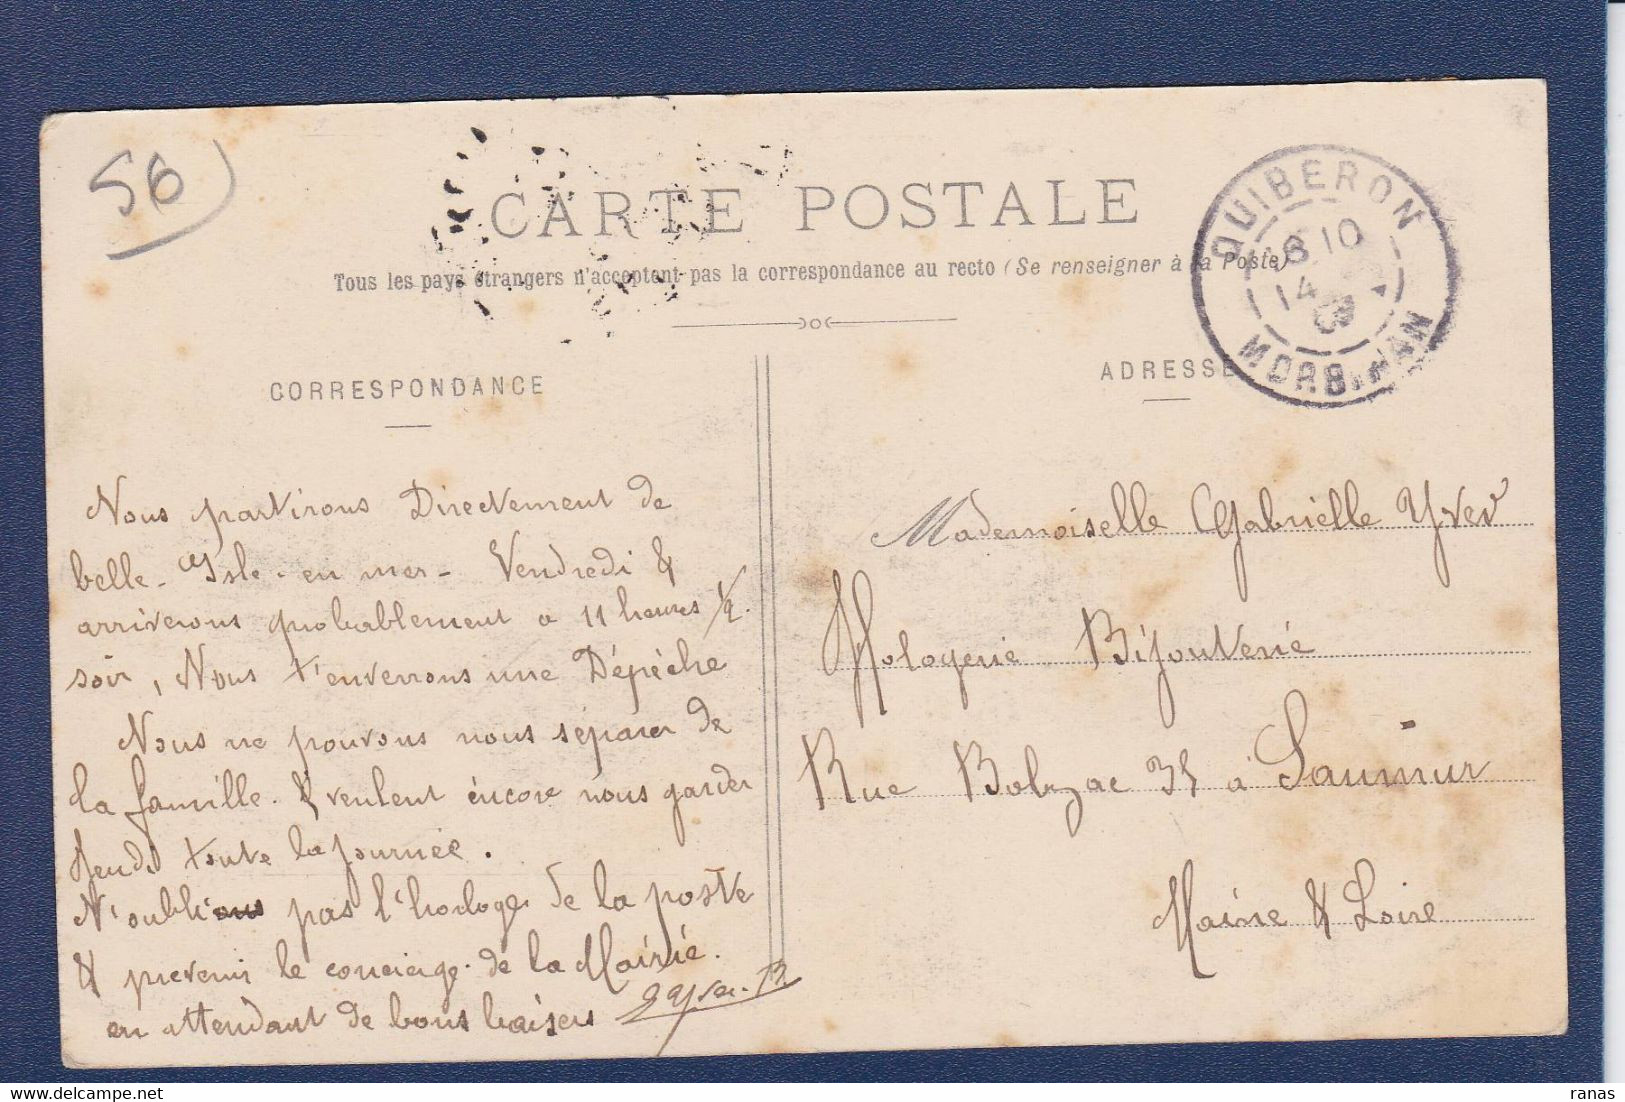 56
CARTE POSTALE
Tous les pays étrangers n'acceptent pas la correspondance au recto (Se renseigner à la Poste)
QUIBERON
18 10
14
09
MORBIHAN
CORRESPONDANCE
ADRESSE
Nous partirons Directement de
belle-Isle-en mer- Vendredi &
arriverons probablement a 11 heures 1/2.
soir, Nous t'enverrons une Dépêche
Nous ne pouvons nous séparer de
la famille. & veulent encore nous garder
Jeudi toute la journée.
N'oublions pas l'horloge de la poste
& prevenir le concierge de la Mairie.
en attendant de bons baisers
Mademoiselle Gabrielle Yver
Horlogerie Bijouterie
Rue Balzac 35 à Saumur
Maine & Loire
ranas